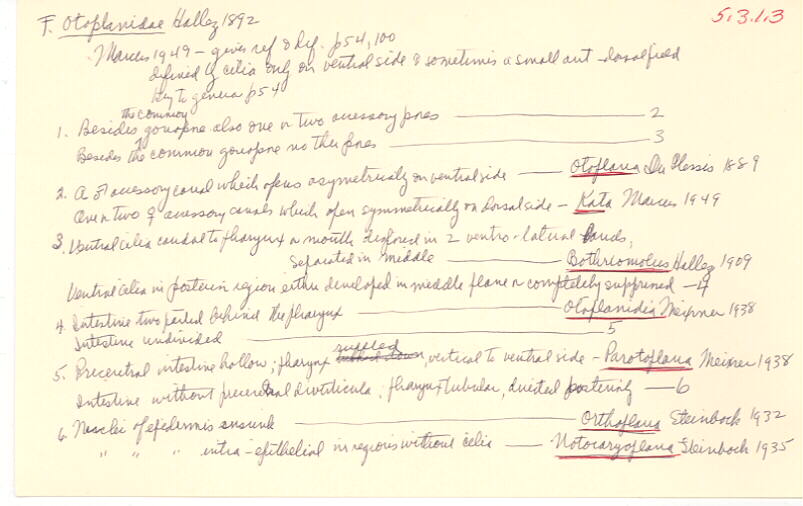 5.3.1.3
F. Otoplanidae Hallez 1892
Marcus 1949 - gives ref & def. p54, 100
defined by cilia only on ventral side & sometimes a small ant - dorsal field
Key to genera p54
the common
1. Besides gonopore also one or two accessory pores 2
Besides the common gonopore no other pores 3
2. A ♂ accessory canal which opens asymetrically on ventral side Otoplana Du Plessis 1889
One or two ♀ accessory canals which open symmetrically on dorsal side - Kata Marcus 1949
3. Ventral cilia caudal to pharynx or mouth in 2 ventro-lateral bands,
separated in middle Bothriomolus Hallez 1909
Ventral cilia in posterior region either developed in middle plane or completely suppressed - 4
4. Intestine two parted behind the pharynx Otoplanidia Meixner 1938
Intestine undivided 5
5. Precerebral intestine hollow; pharynx ruffled, vertical to ventral side - Parotoplana Meixner 1938
Intestine without precerebral diverticula; pharynx tubular, directed posteriorly 6
6. Nuclei of epidermis ensunk Orthoplana Steinbock 1932
" " " intra-epithelial in regions without cilia Notocaryoplana Steinbock 1935